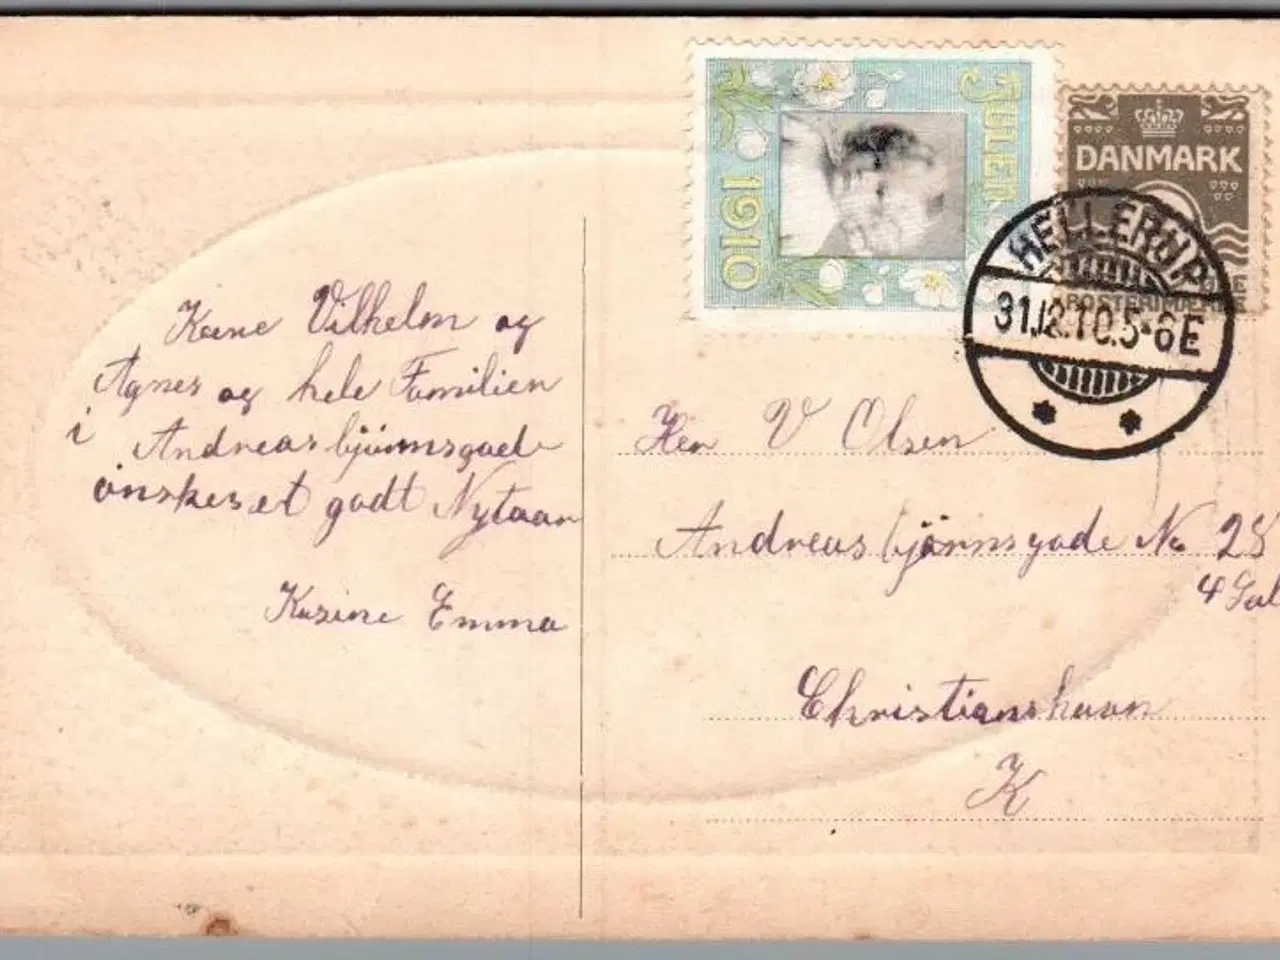 JULEN
1910
DANMARK
HELLERUP
31.12.10.5-6E
Kære Vilhelm og
Agnes og hele Familien
i Andreasbjørnsgade
ønskes et godt Nytaar
Kusine Emma
Herr V Olsen
Andreas bjørnsgade No 28
4 Sal
Christianshavn
K